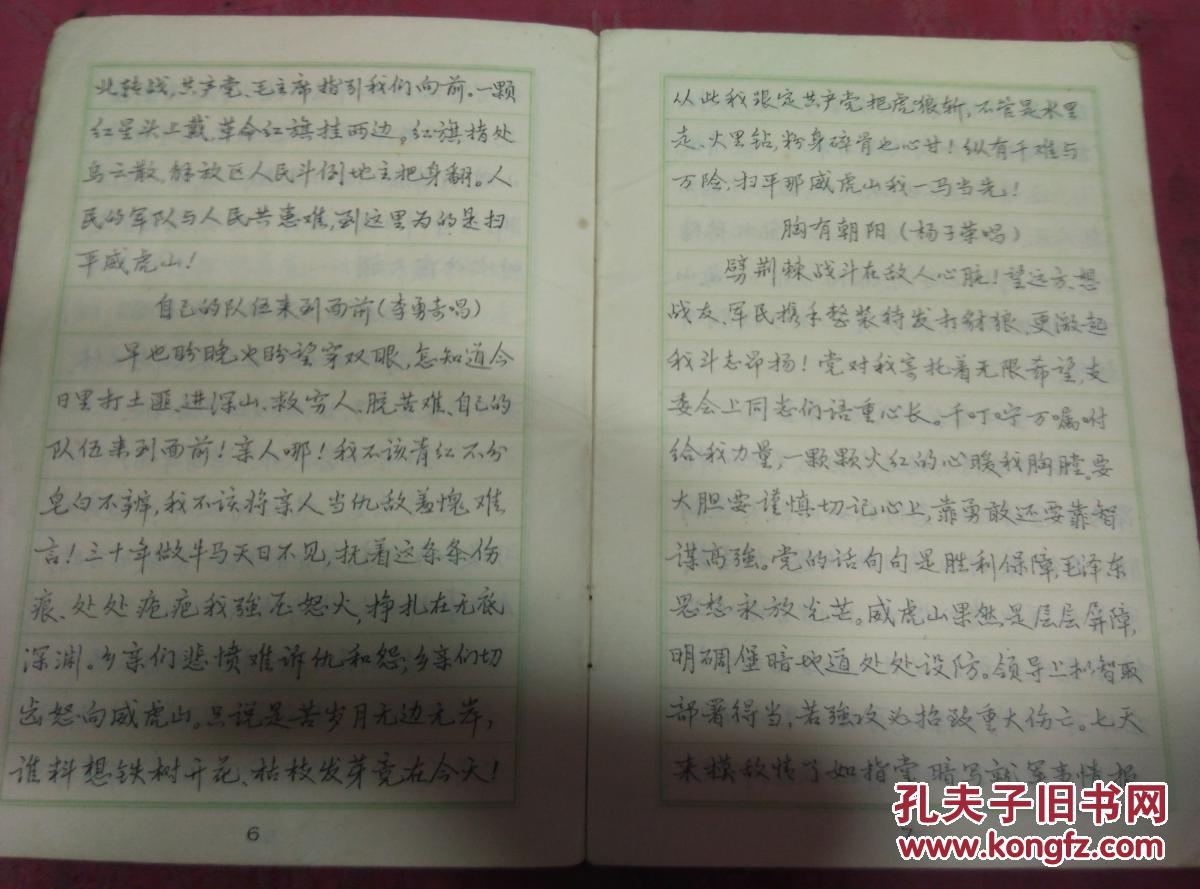 北转战,共产党、毛主席指引我们向前。一颗
红星头上戴,革命红旗挂两边。红旗指处
乌云散,解放区人民斗倒地主把身翻。人
民的军队与人民共患难,到这里为的是扫
平威虎山!
自己的队伍来到面前(李勇奇唱)
早也盼晚也盼望穿双眼,怎知道今
日里打土匪、进深山、救穷人、脱苦难、自己的
队伍来到面前!亲人哪!我不该青红不分
皂白不辨,我不该将亲人当仇敌羞愧难
言!三十年做牛马天日不见,抚着这条条伤
痕、处处疤疤我强压怒火,挣扎在无底
深渊。乡亲们悲愤难诉仇和怨;乡亲们切
齿怒向威虎山。只说是苦岁月无边无岸,
谁料想铁树开花、枯枝发芽竟在今天!
6
从此我跟定共产党把虎狼斩,不管是水里
走、火里钻,粉身碎骨也心甘!纵有千难与
万险,扫平那威虎山我一马当先!
胸有朝阳(杨子荣唱)
劈荆棘战斗在敌人心脏!望远方、想
战友、军民携手整装待发打豺狼,更激起
我斗志昂扬!党对我寄托着无限希望,支
委会上同志们语重心长。千叮咛万嘱咐
给我力量,一颗颗火红的心暖我胸膛。要
大胆要谨慎切记心上,靠勇敢还要靠智
谋高强。党的话句句是胜利保障,毛泽东
思想永放光芒。威虎山果然是层层屏障,
明碉堡暗地道处处设防。领导上拟智取
部署得当,若强攻必招致重大伤亡。七天
来摸敌情了如指掌暗写就军事情报
孔夫子旧书网
www.kongfz.com